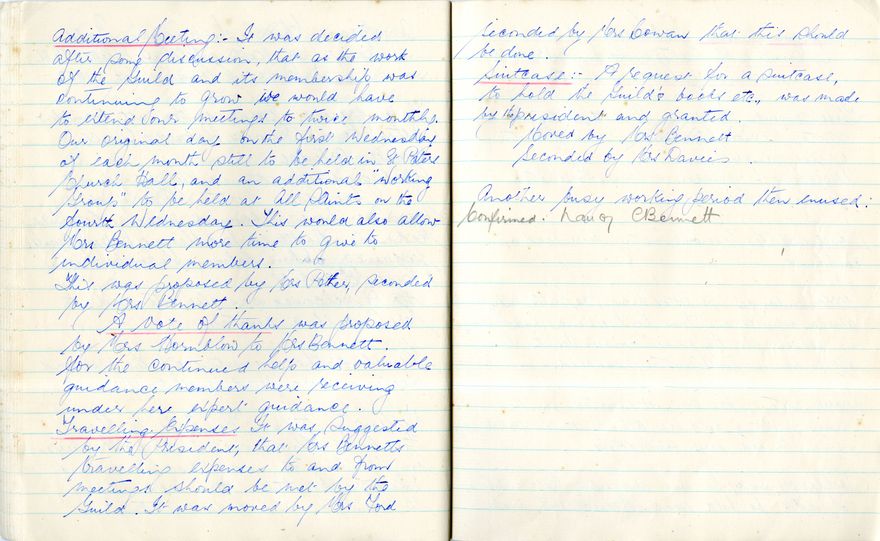 Additional Meeting:- It was decided
after some discussion, that as the work
of the Guild and its membership was
continuing to grow we would have
to extend our meetings to twice monthly.
Our original day on the first Wednesday
of each month still to be held in St Peters
Church Hall, and an additional "Working
Group" to be held at All Saints on the
fourth Wednesday. This would also allow
Mrs Bennett more time to give to
individual members.
This was proposed by Mrs Pother, seconded
by Mrs Bennett.
A vote of thanks was proposed
by Mrs Hornblow to Mrs Bennett.
for the continued help and valuable
guidance members were receiving
under here expert guidance.
Travelling Expenses It was suggested
by the President, that Mrs Bennetts
travelling expenses to and from
meetings should be met by the
Guild. It was moved by Mrs Ford
Seconded by Mrs Cowan that this should
be done.
Suitcase:- A request for a suitcase,
to hold the Guild's books etc., was made
by the President and granted.
Moved by Mrs Bennett
Seconded by Mrs Davies.
Another busy working period then ensued:
Confirmed. Nancy C Bennett